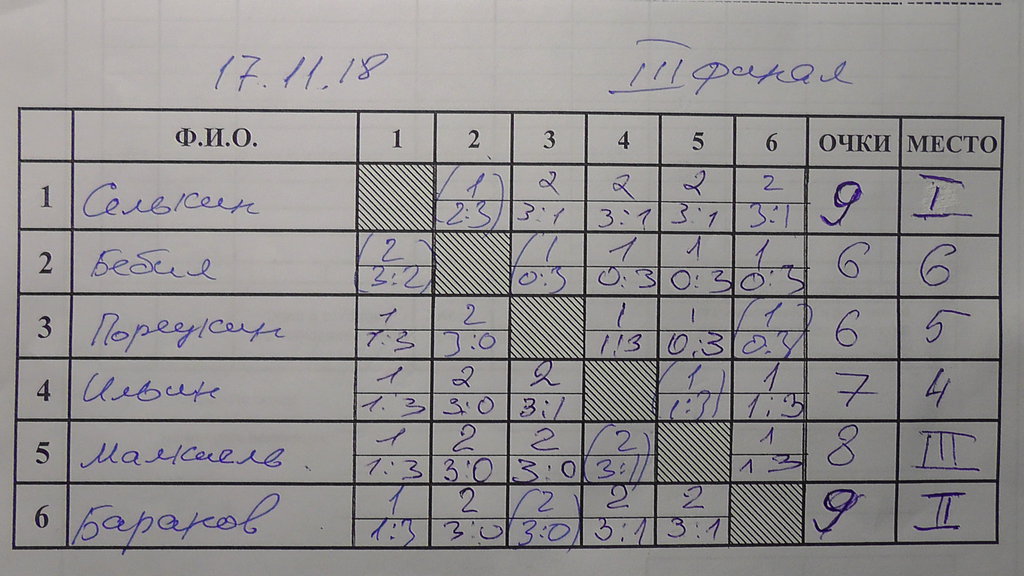 17.11.18 III финал
Ф.И.О. 1 2 3 4 5 6 ОЧКИ МЕСТО
1 Селькин (1) 2 2 2 2 9 I
(2:3) 3:1 3:1 3:1 3:1
2 Бебия (2) (1 1 1 1 6 6
(3:2) (0:3 0:3 0:3 0:3
3 Порецкин 1 2 1 1 (1) 6 5
1:3 3:0 1:3 0:3 (0:3)
4 Ильин 1 2 2 (1) 1 7 4
1:3 3:0 3:1 (1:3) 1:3
5 1 2 2 (2) 1 8 III
1:3 3:0 3:0 (3:1) 1:3
6 Бараков 1 2 (2) 2 2 9 II
1:3 3:0 (3:0) 3:1 3:1